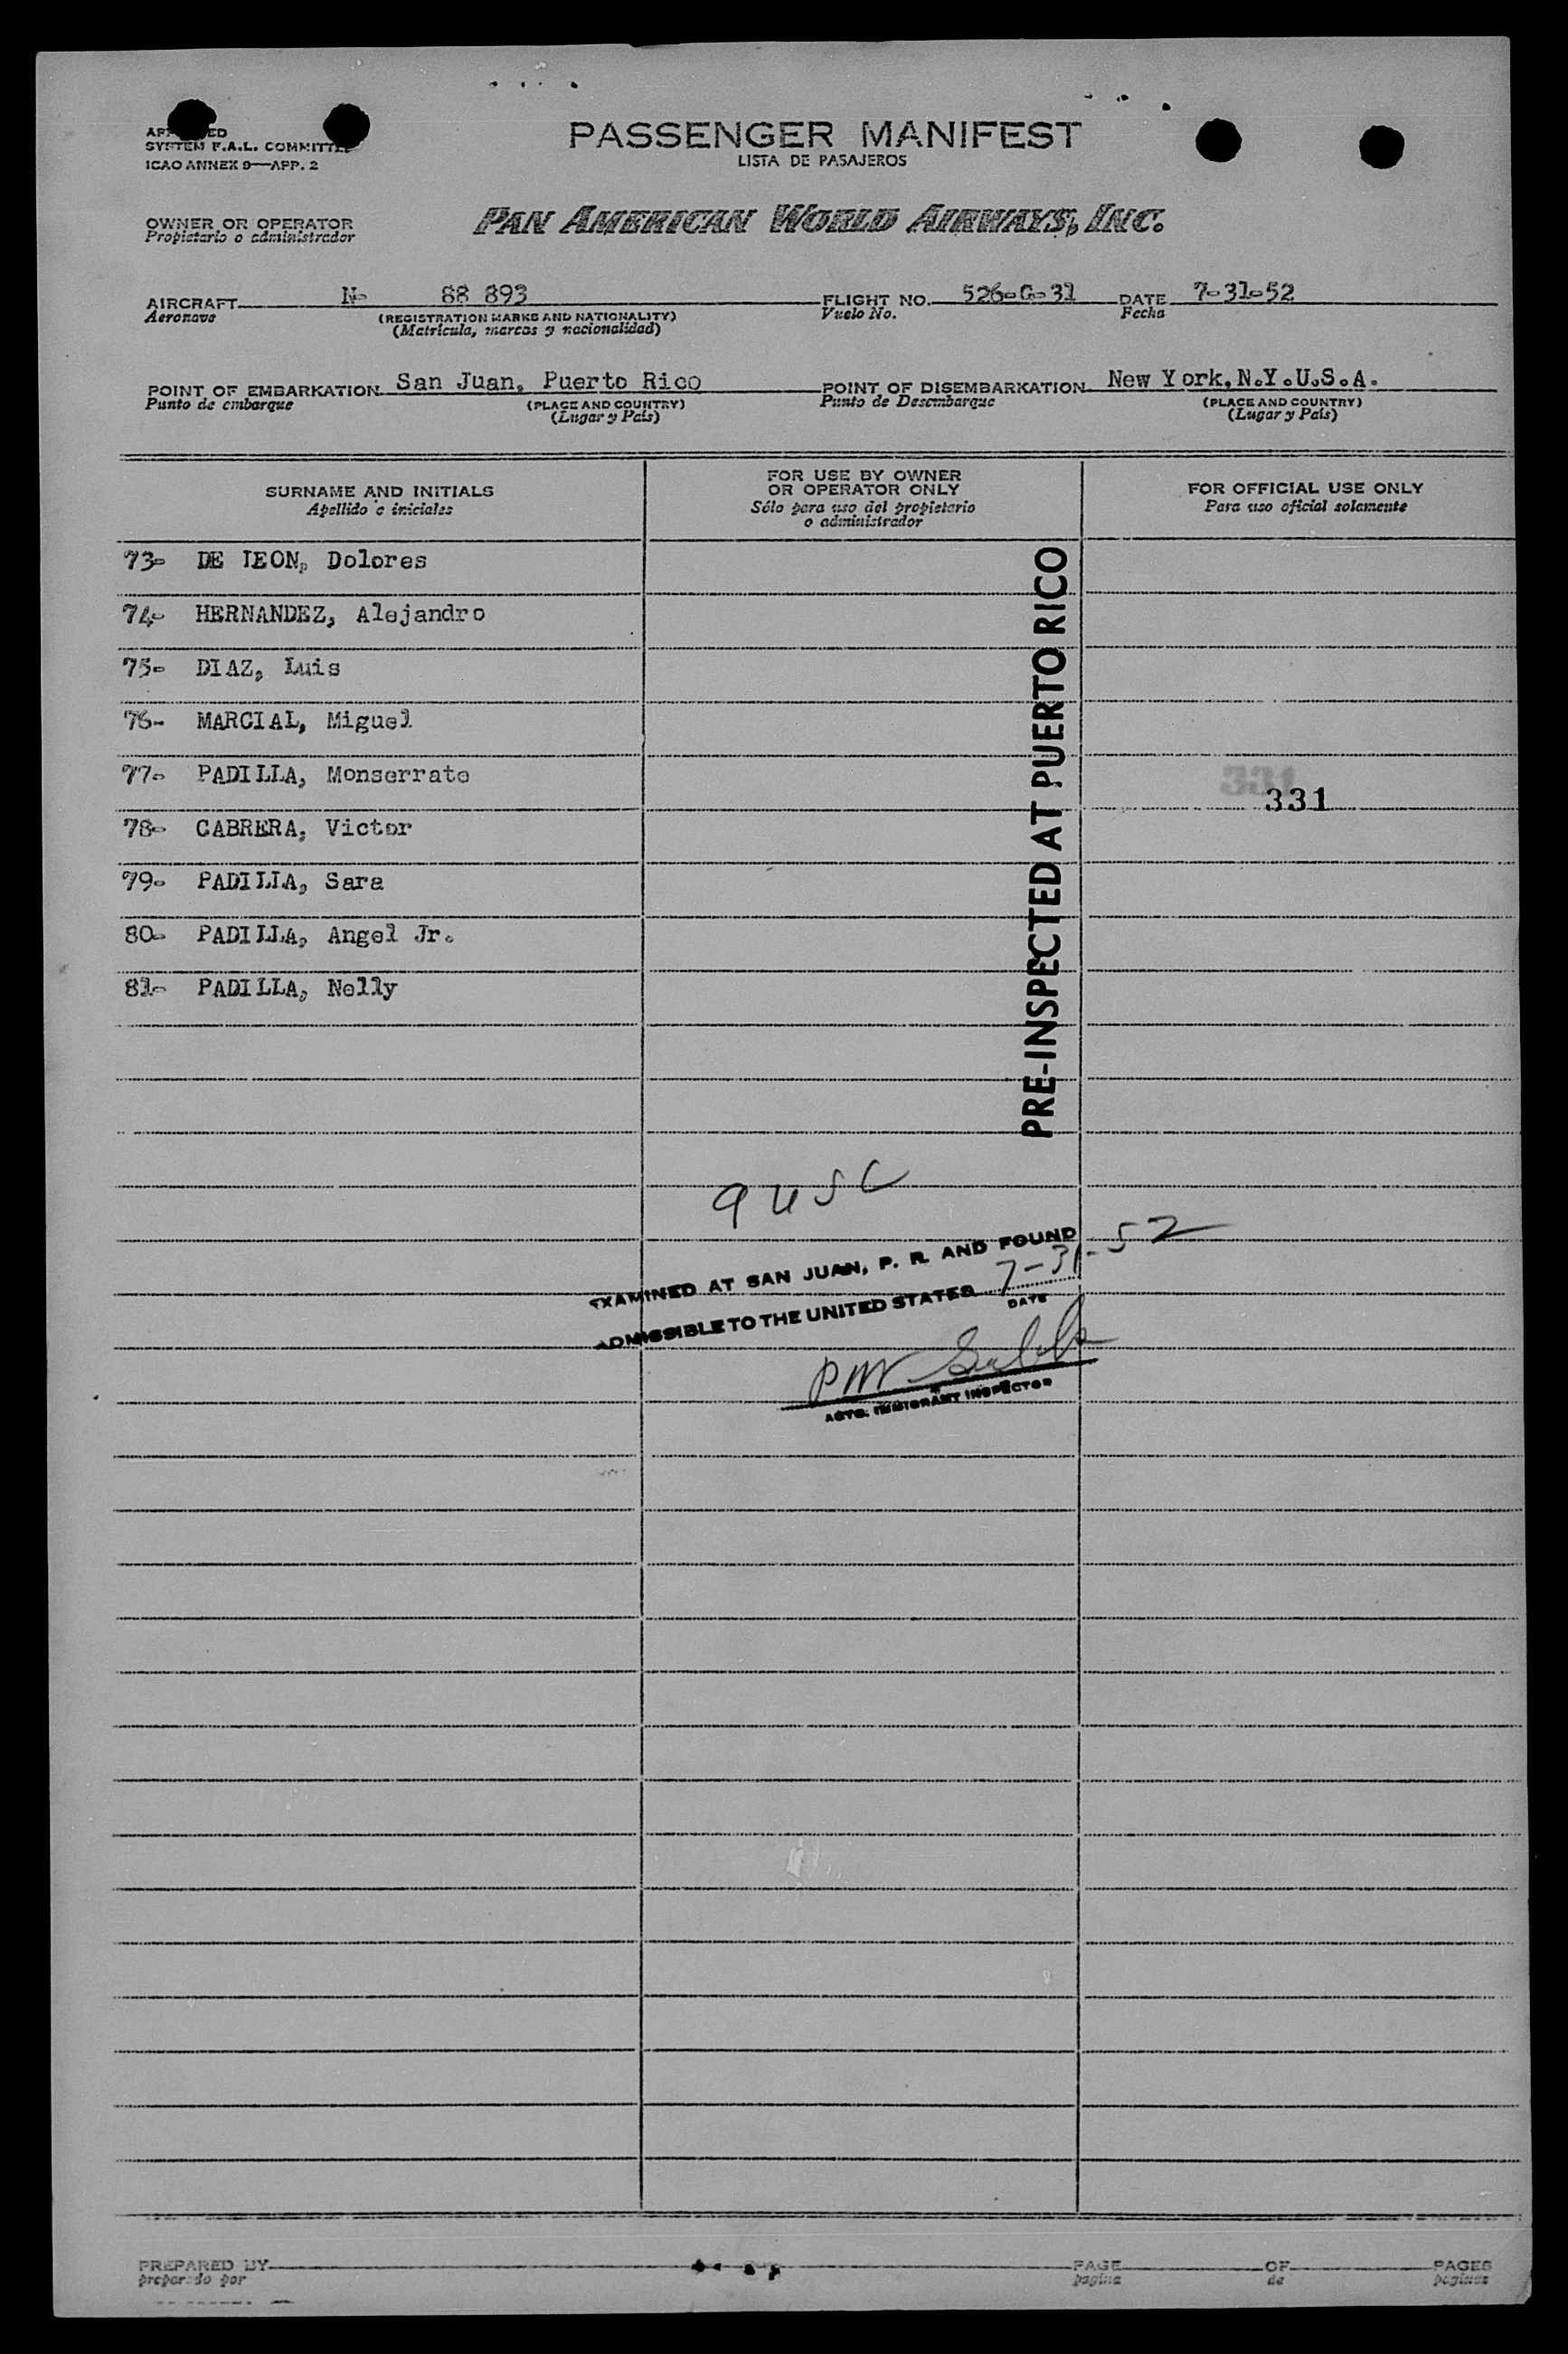 SYSTEM F.A.L. COMMITTEE
ICAO ANNEX 9—APP. 2
PASSENGER MANIFEST
LISTA DE PASAJEROS
OWNER OR OPERATOR
Propietario o administrador
PAN AMERICAN WORLD AIRWAYS, INC.
AIRCRAFT N- 88 893 FLIGHT NO. 526-G-31 DATE 7-31-52
Aeronave (REGISTRATION MARKS AND NATIONALITY) Vuelo No. Fecha
(Matrícula, marcas y nacionalidad)
POINT OF EMBARKATION San Juan, Puerto Rico POINT OF DISEMBARKATION New York,N.Y.U.S.A.
Punto de embarque (PLACE AND COUNTRY) Punto de Desembarque (PLACE AND COUNTRY)
(Lugar y País) (Lugar y País)
SURNAME AND INITIALS
Apellido e iniciales
FOR USE BY OWNER
OR OPERATOR ONLY
Sólo para uso del propietario
o administrador
FOR OFFICIAL USE ONLY
Para uso oficial solamente
73- DE LEON, Dolores
74- HERNANDEZ, Alejandro
75- DIAZ, Luis
76- MARCIAL, Miguel
77- PADILLA, Monserrate
78- CABRERA, Victor
79- PADILLA, Sara
80- PADILLA, Angel Jr.
81- PADILLA, Nelly
PRE-INSPECTED AT PUERTO RICO
331
331
9 USC
EXAMINED AT SAN JUAN, P. R. AND FOUND
ADMISSIBLE TO THE UNITED STATES 7-31-52
DATE
ACTG. IMMIGRANT INSPECTOR
PREPARED BY PAGE OF PAGES
preparado por pagina de paginas